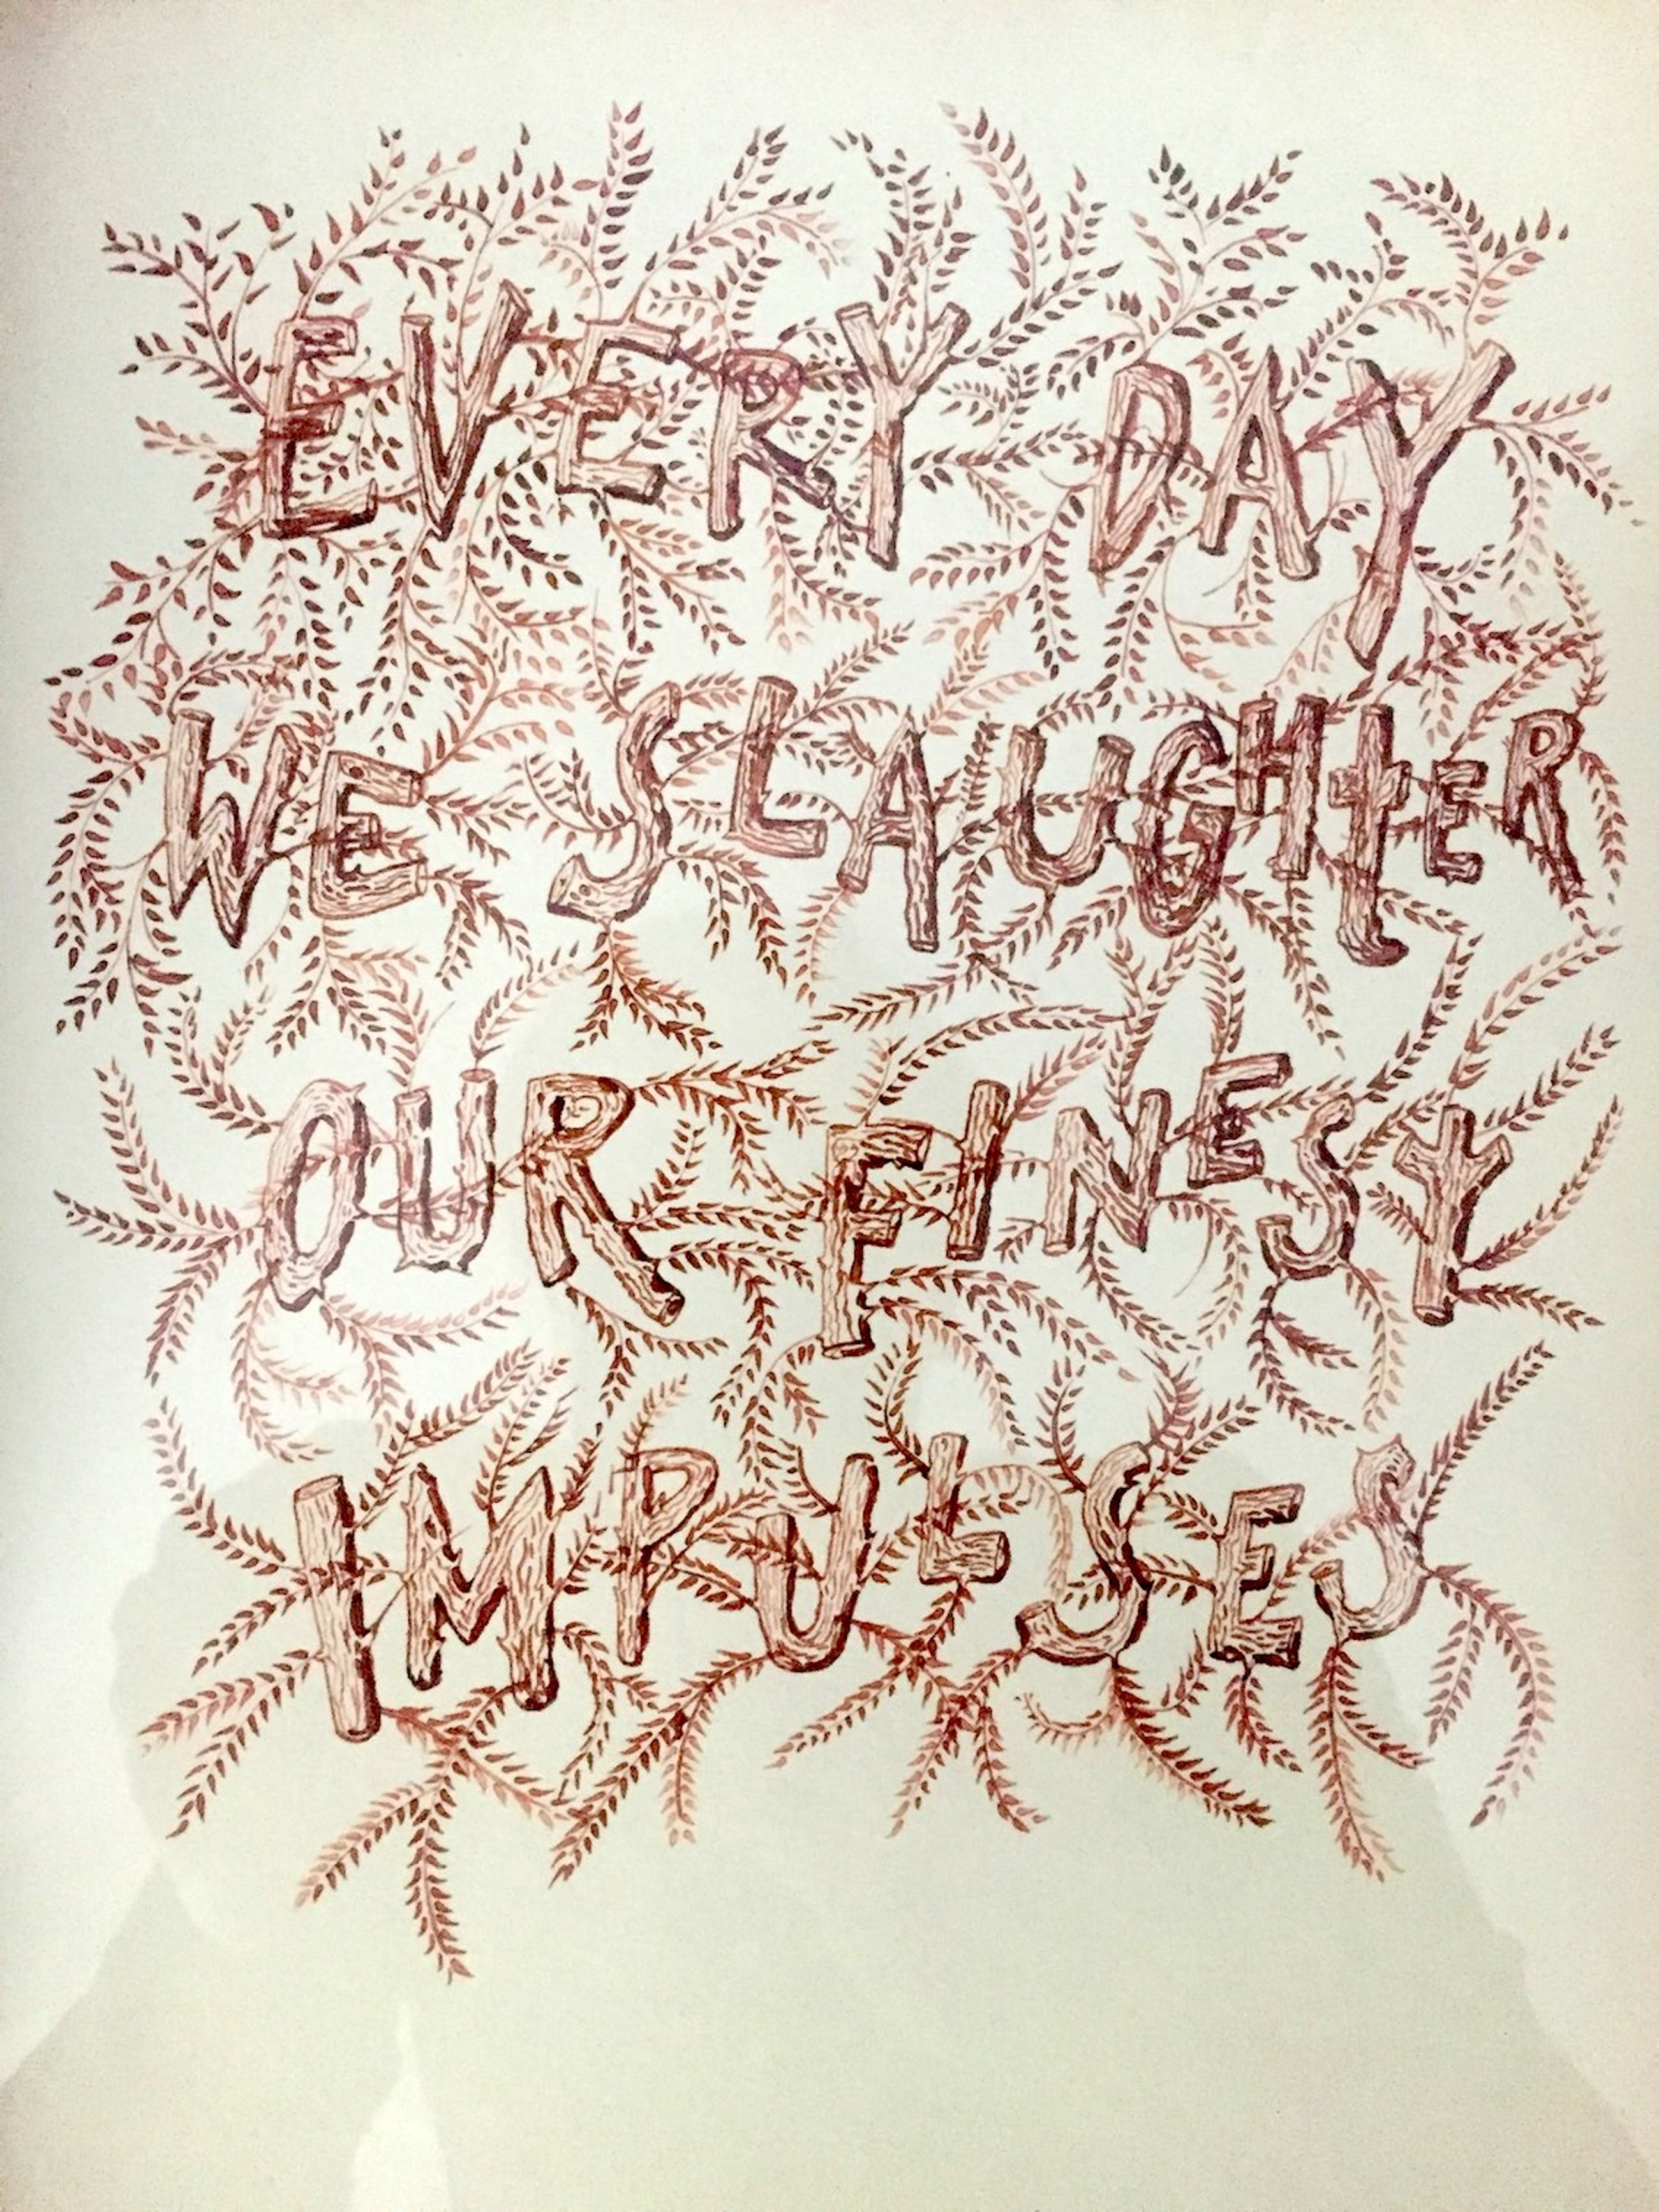 EVERY DAY
WE SLAUGHTER
OUR FINEST
IMPULSES